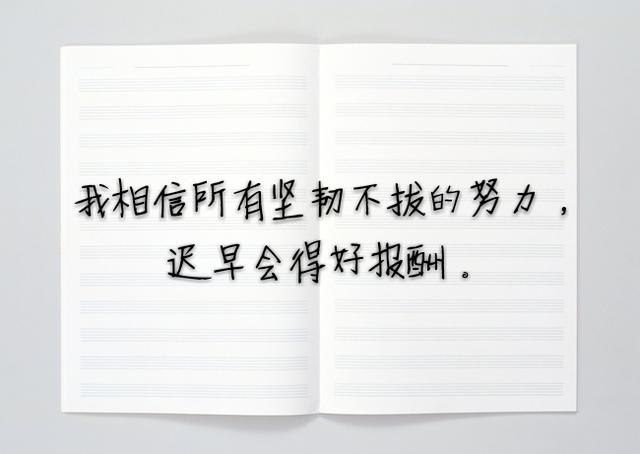 我相信所有坚韧不拔的努力，
迟早会得好报酬。